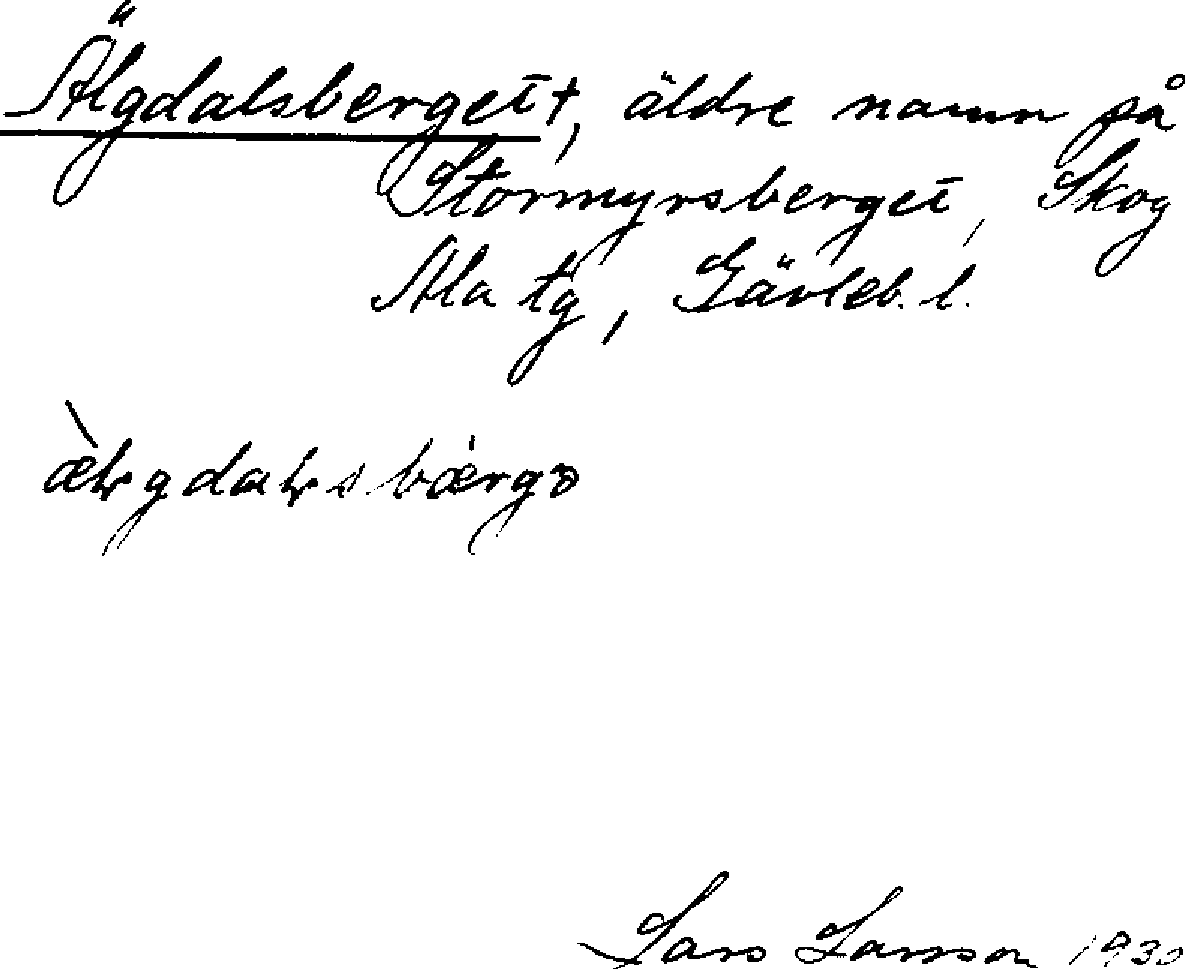 Älgdalsberget †, äldre namn på
Stormyrsberget, Skog
Ala tg, Gävleb. l.
Lars Larsson 1930